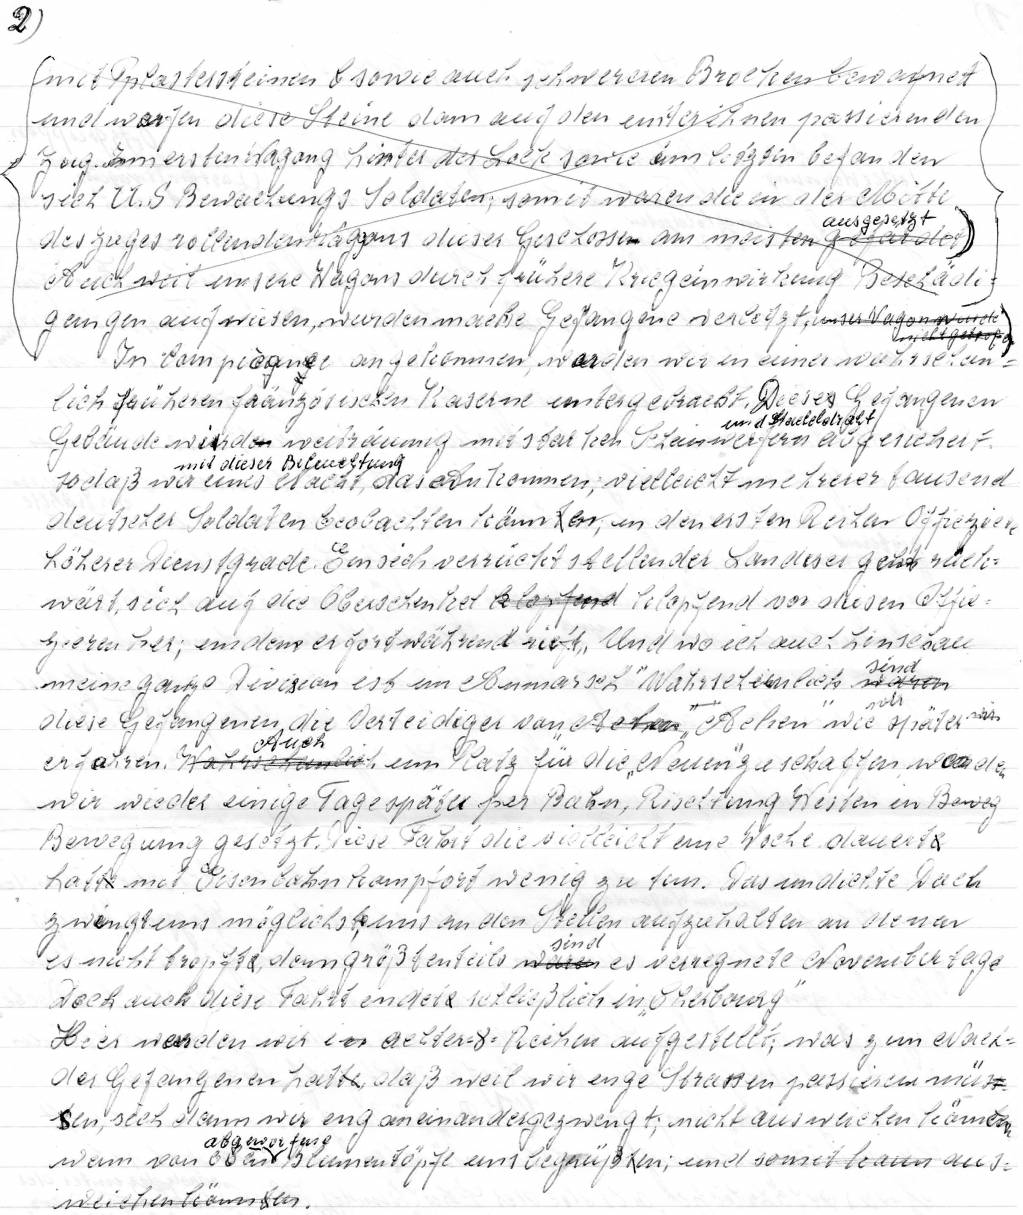 2)
mit Pplastersteinen & sowie auch schwereren Brocken bewafnet
und warfen diese Steine dann auf den unter ihnen passierenden
Zug. Im ersten Wagong hinter der Lock sowie im letzten befanden
sich U.S Bewachungs Soldaten; somit waren die in der Mitte
des Zuges rollenden Wagons dieser Geschosse am meisten gefärdet ausgesetzt)
Auch weil unsere Wagons durch frühere Kriegeinwirkung Beschädi-
gungen aufwiesen, wurden manche Gefangene verletzt, unser Wagon wurde nicht getroffen)
In Compiegne angekommen, werden wir in einer wahrschein-
lich früheren französischen Kaserne untergebracht. Dieses Gefangenen
Gelände wird weiträumig mit starken Scheinwerfern und Stacheldraht abgesichert.
sodaß wir eines Nacht, mit dieser Beleuchtung das Ankommen; vielleicht mehrerer tausend
deutscher Soldaten beobachten können, in den ersten Reihen Offiziere
höherer Dienstgrade. Ein sich verrückt stellender Landser geht rück-
wärt, sich auf die Oberschenkel klopfend klopfend vor diesen Offi-
zieren her; indem er fortwährend ruft, "Und wo ich auch hinschau
meine ganze Division ist im Anmarsch" Wahrscheinlich waren sind
diese Gefangenen die Verteidiger von Achen "Achen" wie wir später wir
erfahren. Wahrscheinlich Auch um Platz für die "Neuen" zu schaffen, werden
wir wieder einige Tage später per Bahn, Richtung Westen in Beweg
Bewegung gesetzt. Diese Fahrt die vielleicht eine Woche dauert
hat mit Eisenbahnkompfort wenig zu tun. Das undichte Dach
zwingt uns möglichst, uns an den Stellen aufzuhalten an denen
es nicht tropft, denn größtenteils waren sind es verregnete Novembertage
Doch auch diese Fahrt endet schließlich in "Cherbourg"
Hier werden wir in achter-8-Reihen aufgestellt; was zum Nach-
der Gefangenen hatt, daß weil wir enge Strassen passieren müs-
sen, sich dann wir eng aneinandergezwengt; nicht ausweichen können
wenn von oben abgeworfene Blumentöpfe uns begrüßen; und somit kaum aus-
weichen können.